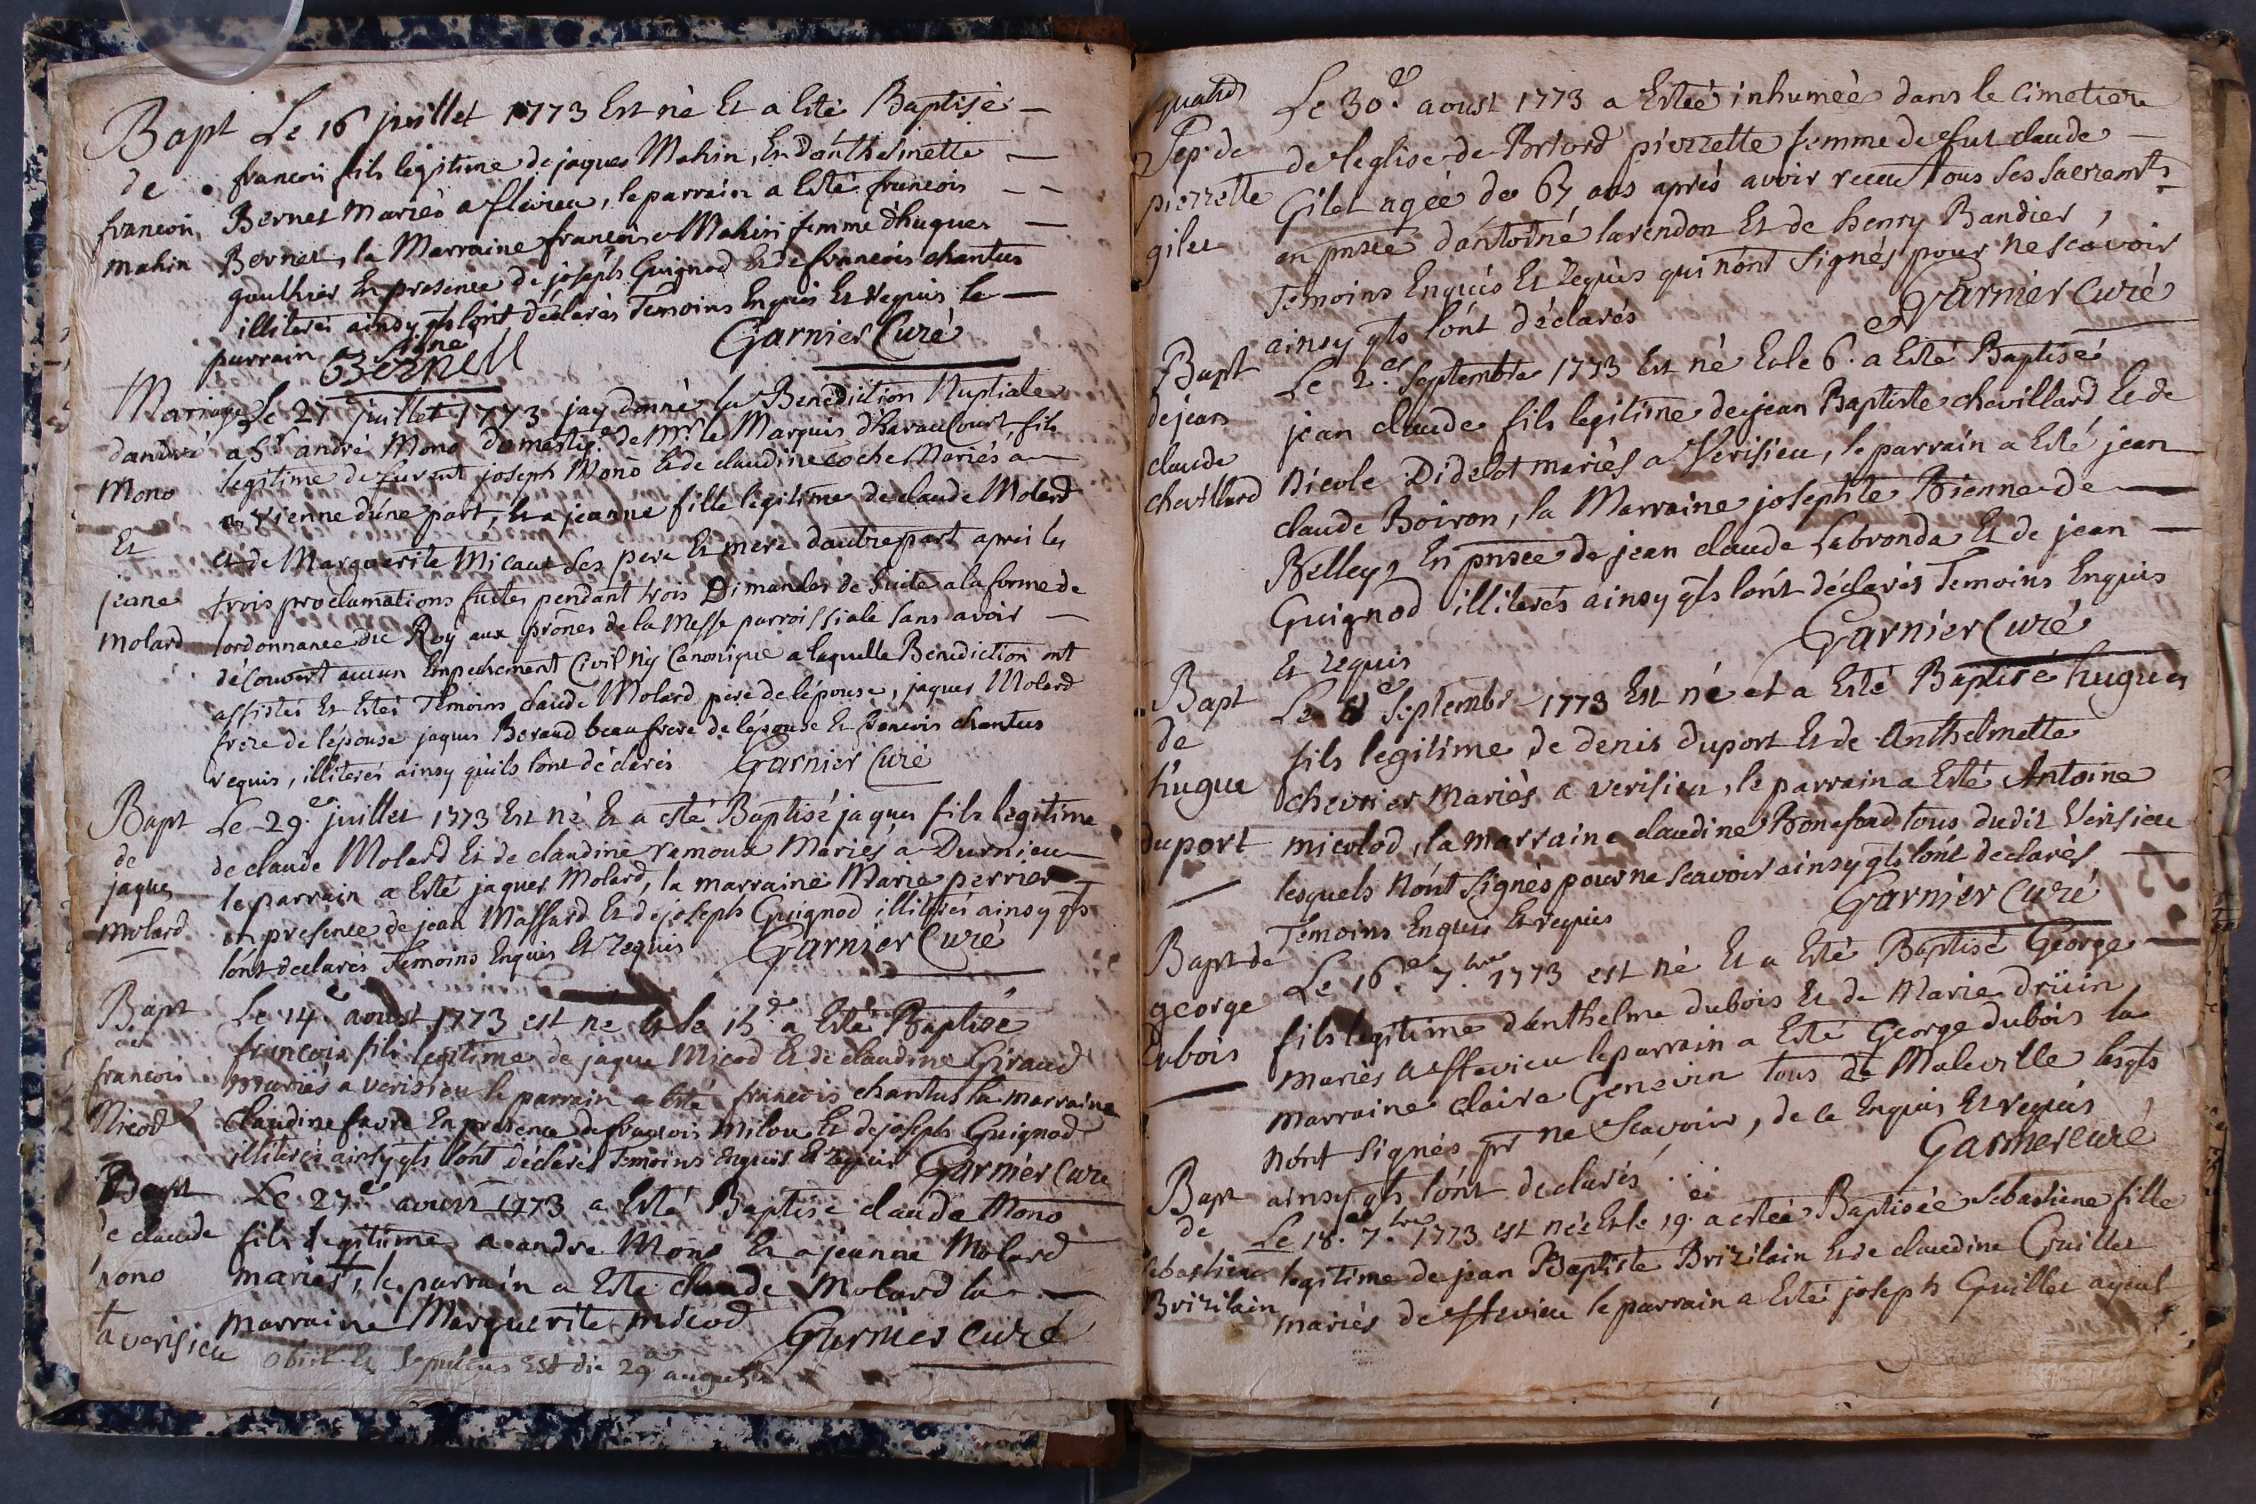 Bapt
de
francois
mahin
Le 16 juillet 1773 Est né Et a Esté Baptisé
francois fils legitime de jaques Mahin, Et Danthelmette
Bernet mariés a flévieu, le parrain a Esté francois
Bernet, la Marraine francoise Mahin femme d'hugues
gauthier En presence de joseph Guignod Et de francois chantus
illiterés ainsy qls lónt déclarés Temoins Enquis Et Requis le
parrain a signé
Bernet
Garnier Curé
Mariage
dandré
Mono
Et
jeane
molard
Le 27 juillet 1773 jay donné la Benediction Nuptiale
a Sr andré Mono domestiq. de Mr. le Marquis dharaucourt, fils
legitime de furent joseph Mono Et de claudine coche Mariés a
Vienne dúne part, Et a jeanne fille legitime de claude Molard
Et de Marguerite Micaut Ses pere Et mere dautre part aprés les
trois proclamations faites pendant trois Dimanches de Suite a la forme de
lordonnance du Roy aux prônes de la Messe parroissiale Sans avoir
découvert aucun Empechement Civil ny Canonique a laquelle Benediction ont
assistés Et Estés Témoins claude Molard pere de lépouse, jaques Molard
frere de lépouse jaques Beraud beaufrere de lépouse Et francois chantus
requis, illiterés ainsy quils lont déclarés Garnier Curé
Bapt
de
jaques
molard
Le 29e juillet 1773 Est né Et a esté Baptisé jaques fils legitime
de claude Molard Et de claudine ramoux Mariés a Durnieu
le parrain a Esté jaques Molard, la marraine Marie perrier
en presence de jean Massard Et de joseph Guignod illiterés ainsy qls
lónt declarés Temoins Enquis Et Requis Garnier Curé
Bapt
de
francois
Nicod
Le 14e aoust 1773 est né Et le 15e a Esté Baptisé
francois fils legitime de jaque Nicod Et de claudine Giraud
mariés a verisieu le parrain a Esté francois chantus la marraine
Claudine favre En presence de francois milou Et de joseph Guignod
illiterés ainsy qls lónt déclarés Temoins Enquis Et requis Garnier Curé
Bapt
de claude
mono
a verisieu
Le 27e aoust 1773 a Esté Baptisé claude Mono
fils legitime a andre Mono Et a jeanne Molard
mariés, le parrain a Esté claude Molard la
marraine Marguerite micod Garnier curé
obiit Et Sepultus Est die 29a augusti
Sep. de
pierrette
gilet
Le 30e. aoust 1773 a Estéé inhumèe dans le Cimetiere
de leglise de Briord pierrette femme de fut claude
Gilet agèe de 67 ans aprés avoir receu tous Ses Sacremts
en pnsce d'antoiné larendon Et de henry Bandier,
Temoins Enquis Et requis qui n'ónt Signés pour ne scavoir
ainsy qls lónt déclarés Garnier Curé
Bapt
de jean
claude
chevillard
Le 2.e Septembre 1773 Est né Et le 6. a Esté Baptisé
jean claude fils legitime de jean Baptiste chevillard Et de
Nicole Didelot mariés a Verisieu, le parrain a Esté jean
claude Boiron, la Marraine josephte Bienne de
Belley, En pnsce de jean claude Labronda Et de jean
Guignod illiterés ainsy qls lónt déclarés Temoins Enquis
Et requis Garnier Curé
Bapt
de
hugue
duport
Le 8e Septembr 1773 Est né et a Esté Baptisé hugues
fils legitime de denis duport Et de Anthelmette
chevrier Mariés a verisieu, le parrain a Esté Antoine
micolod, la marraine claudine Bonefond tous dudit Verisieu
lesquels Nónt Signés pour ne Scavoir ainsy qls lónt declarés
Temoins Enquis Et requis Garnier Curé
Bapt de
george
dubois
Le 16.e 7.bre 1773 est né Et a Esté Baptisé George
fils legitime d'anthelme dubois Et de Marie drüin
mariés a flevieu le parrain a Esté George dubois la
marraine claire Genevin tous de Maleville lesqls
nónt Signés pr ne Scavoir, de ce Enquis Et requis
ainsy qls lónt declarés Garnier curé
Bapt
de
sebastiene
Brizilain
Le 18.e 7.bre 1773 est née Et le 19. a estée Baptisée sebastiene fille
legitime de jean Baptiste Brizilain Et de claudine Guillet
mariés de flevieu le parrain a Esté joseph Guillet ayeul